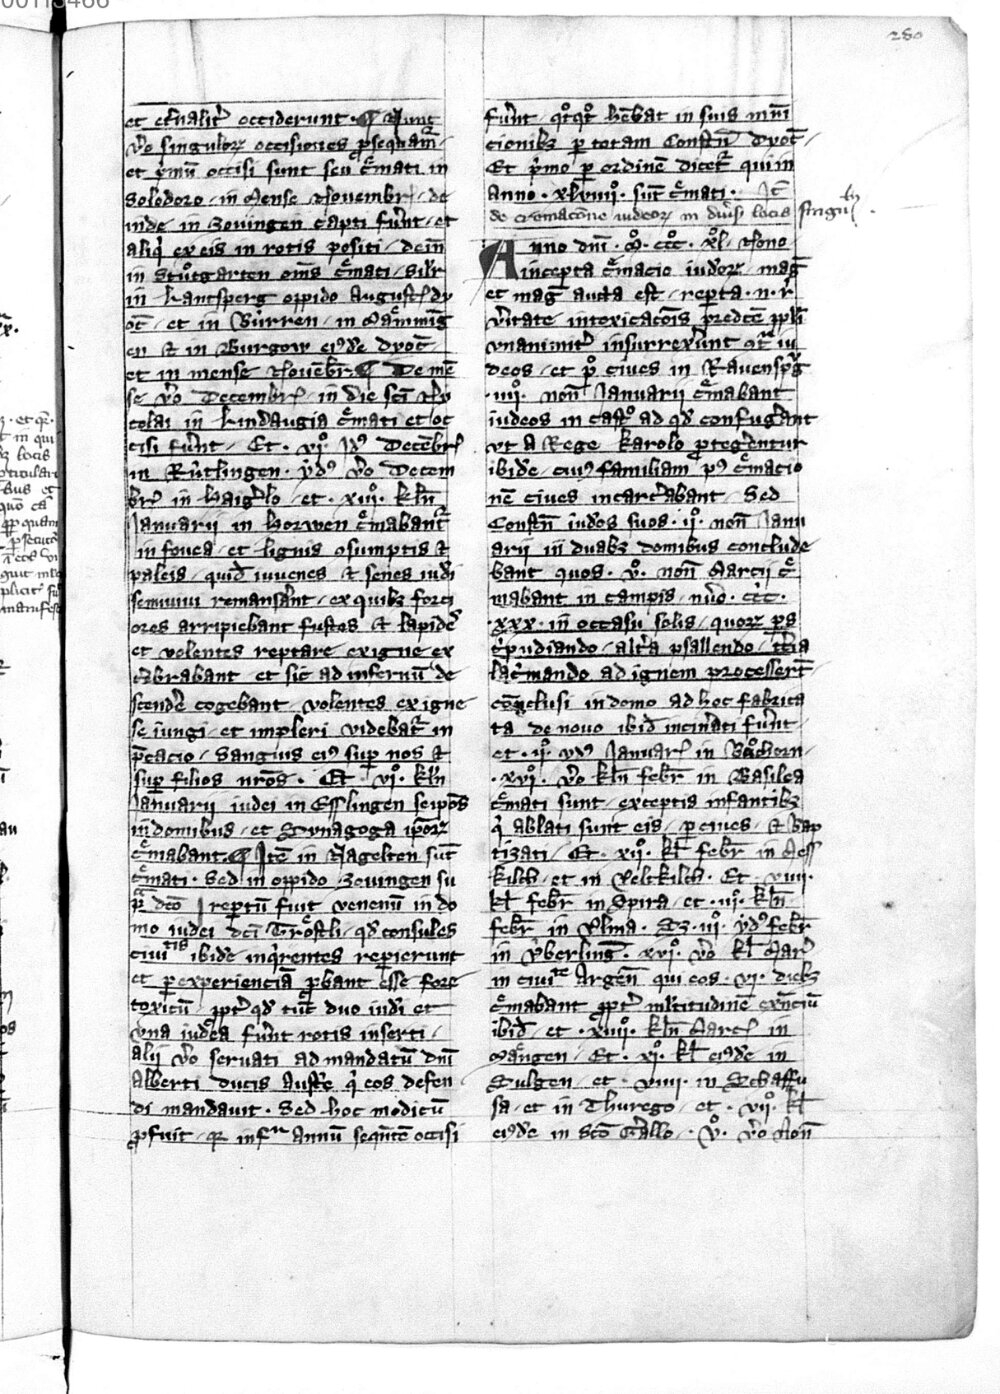 280
et eternalit̄ occiderunt · ¶ Nunc
v̄o singulor̄ occisiones ꝓsequam̄
et p̄mū occisi sunt seu c̄mati in
Solodoro · in Mense Nouembr̄ / de
inde in Zouingen capti fūnt · et
aliq̄ ex eis in rotis positi / dein̄
in Stůtgarten om̄s c̄mati / sil'r
in Lantsperg oppido August̄ dy
oc̄ / et in Bůrren / in Mām̄inḡ
en et in Burgow ei'dē dyoc̄ ·
et in mense Nouēbr̄ ¶ De mē
se v̄o Decembr̄ / in die sc̄i Ny
colai in Lindaugia c̄mati et oc
cisi fūnt / Et · vj° · Jd' Decēbr̄
in Růtlingen · ẏd' v̄o Decem
br̄ in Haig'lo / et · xiij° · kl̄n
Januarii in Horwen c̄mabant̄
in fouea / et lignis ɔsumptis et
paleis / quid̄ iuuenes et senes iud̄i
semiuiui remansānt / ex quib3 forci
ores arripiebant fustes et lapides
et volentes reptare ex igne ex
c̄ebrabant et sic ad infernū de
scendē cogebant / volentes ex igne
se iungi / et impleri videbat̄ in
p̄cacio / Sanguis ei' sup̄ nos et
sup̄ filios nr̄os · Et · vj° · kl̄n
Januarii iudei in Esslingen seipōs
in domibus / et Synagoga ip̄or̄
c̄mabant ¶ Itē in Nagelten sūt
c̄mati · Sed in oppido Zouingen su
p̄ dc̄o repertū fuit venenū in do
mo iudei dc̄i Trȫstli / qd̄ consules
ciui^tis ibidē inq̄rentes reperierunt
et p̄ experienciā ꝓbant esse fore
toxicū / ꝓpt̄ qd̄ tūc duo iud̄i et
vna iud̄ea fūnt rotis inserti /
alij v̄o seruati ad mandatū dn̄i
Alberti ducis Austr̄e q̄ eos defen
di mandauit · Sed hoc modicū
ꝓfuit / qr̄ infr̄a annū sequētē occisi
fūnt / qt̄qt̄ hēbat in suis mūi
cionib3 p̄ totam Constn̄ dyoc̄ /
Et p̄mo p̄ ordinē dicet̄ qui in
Anno · xlviiij° · sūt c̄mati ·
de cremacōne iudeor̄ in diūsis locis singul'
Anno dn̄i · M° · ccc° · xl° · Nono ·
incepta c̄macio iud̄or̄ · mag̅
et mag̅ aucta est / reperta ·n· r̄
v̄itate intoxicacōis predc̄e ppl̄i
vnanimit̄ insurrex̄unt ɔt̄ iu
deos / et p̄° ciues in Rauenspg̅
· iiij° · non̄ Januarii c̄mabant
iudeos in cast° ad qd̄ confug̅ant
vt A Rege Karolo ꝓteg̅entur
ibidē / cui' familiam p' c̄macio
nē ciues incarc̄abant / Sed
Constn̄ iud̄os suos · ij° · non̄ Janu
arii in duab3 domibus conclude
bant quos · v° · non̄ Marcij c̄
mabant in campis / nūo · ccc° ·
· xxx · in occasu solis / quor̄ ps
t̄pudiando / alt̄a psallendo / t̄cia
lac̄mando ad ignem processer̄t
conclusi in domo ad hoc fabrica
ta de nouo ibid̄ incinati fūnt
et · iij° · yd' Januar̄ in Bůchorn /
· xvij° · v̄o kl̄n febr̄ in Basilea
c̄mati sunt / exceptis infantib3
q̄ ablati sunt eis / p̄ ciues / et bap
tizati / Et · xij° · kl̄ febr̄ in Mess
kilch / et in Velckilch · Et · viiij ·
kl̄ febr̄ in Spira / et · iij° · kl̄n
febr̄ in Vlma · Et · iij° · yd' febr̄
in v̄berling̅ · xvj° · v̄o kl̄ Mar̄
in ciui^te Argen̄ qui eos · vj · dieb3
c̄mabant ꝓpt̄ mltitudinē exn̄ciū
ibid̄ / et · xiiij° · kl̄n Marc̄ in
Mängen / Et · xj° · kl̄ ei'dē in
Sulgen / et · viiij · in Schaffu
sa / et in Thurego / et · vij° · kl̄
ei'dē in Sc̄o Gallo / · v° · v̄o Non̄